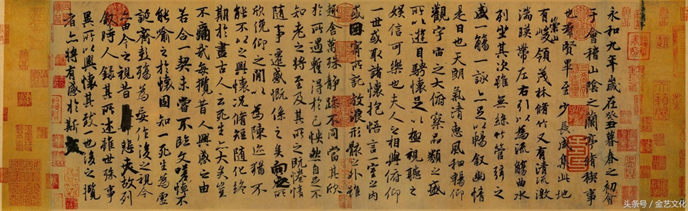 永和九年歲在癸丑暮春之初會
于會稽山陰之蘭亭脩稧事
也羣賢畢至少長咸集此地
有崇山峻領茂林脩竹又有清流激
湍暎帶左右引以為流觴曲水
列坐其次雖無絲竹管弦之
盛一觴一詠亦足以暢敘幽情
是日也天朗氣清惠風和暢仰
觀宇宙之大俯察品類之盛
所以遊目騁懷足以極視聽之
娛信可樂也夫人之相與俯仰
一世或取諸懷抱悟言一室之內
或因寄所託放浪形骸之外雖
趣舍萬殊靜躁不同當其欣
於所遇暫得於己怏然自足不
知老之將至及其所之既惓情
隨事遷感慨係之矣向之所
欣俛仰之閒以為陳迹猶不
能不以之興懷況脩短隨化終
期於盡古人云死生亦大矣豈
不痛哉每攬昔人興感之由
若合一契未嘗不臨文嗟悼不
能喻之於懷固知一死生為虛
誕齊彭殤為妄作後之視今
亦由今之視昔悲夫故列
敘時人錄其所述雖世殊事
異所以興懷其致一也後之攬
者亦將有感於斯文
头条号 / 金艺文化